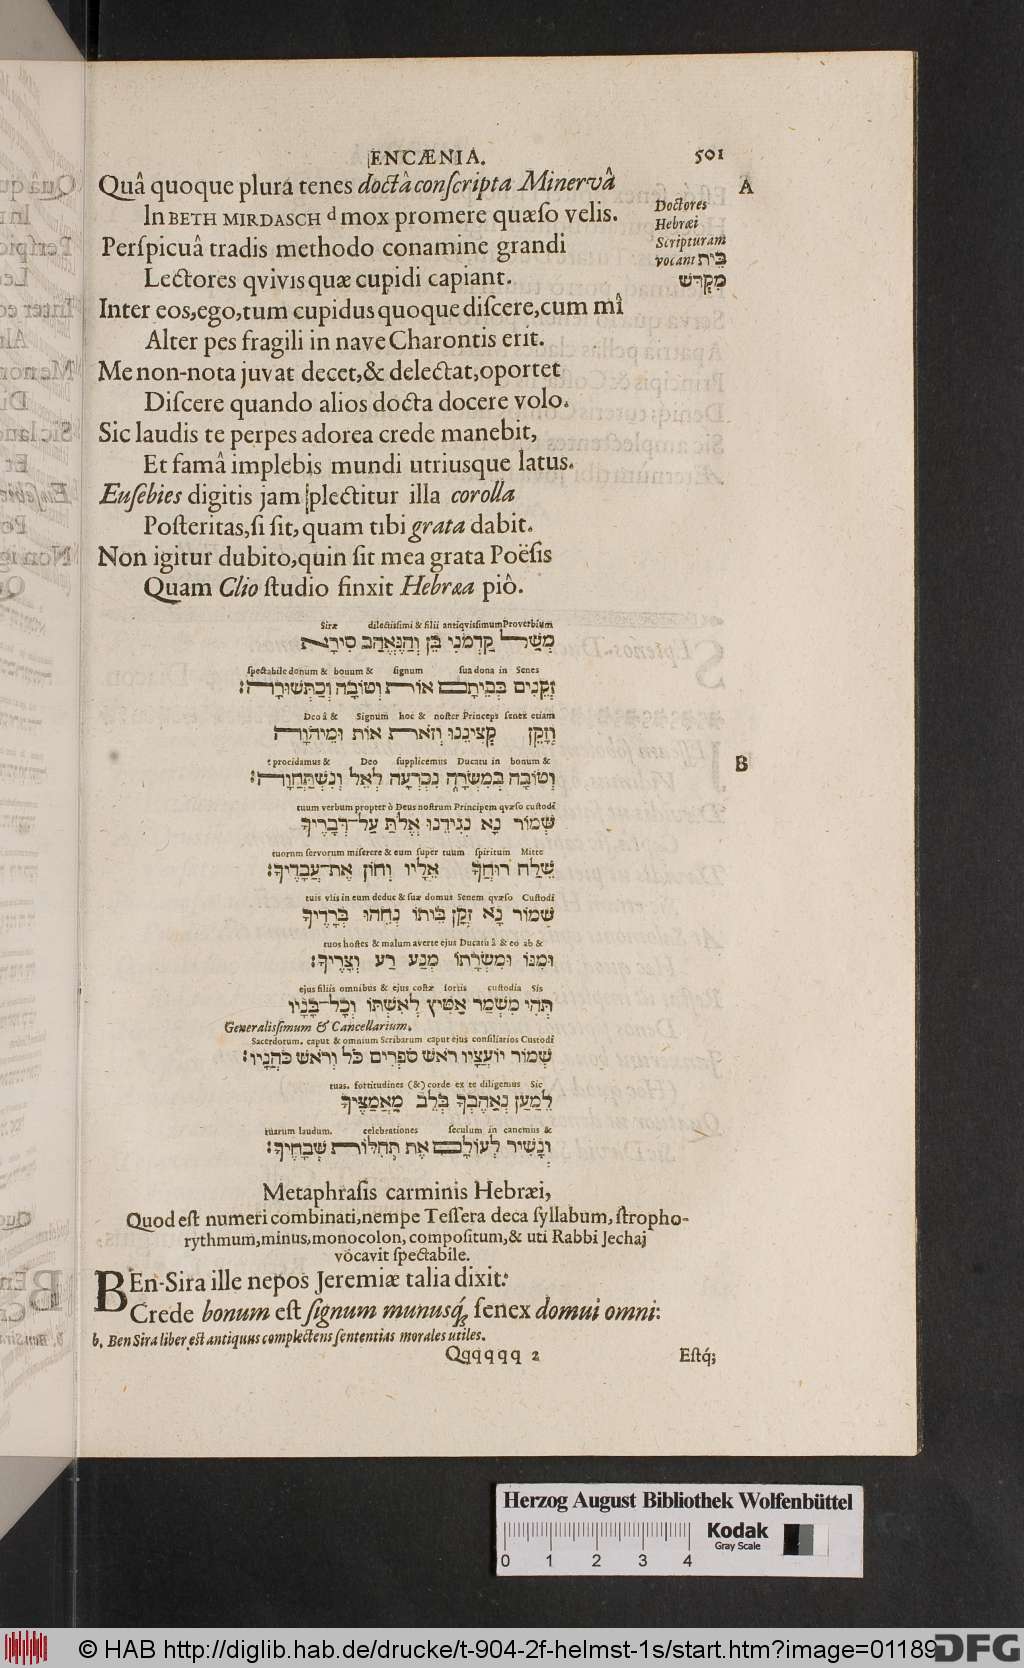 ENCÆNIA. 501
Quâ quoque plura tenes doctâ conſcripta Minervâ A
In BETH MIRDASCH d mox promere quæſo velis.
Doctores
Hebræi
Scripturam
vocant בֵּית
מִקְדָּשׁ
Perſpicuâ tradis methodo conamine grandi
Lectores qvivis quæ cupidi capiant.
Inter eos, ego, tum cupidus quoque diſcere, cum mî
Alter pes fragili in nave Charontis erit.
Me non-nota juvat decet, & delectat, oportet
Diſcere quando alios docta docere volo.
Sic laudis te perpes adorea crede manebit,
Et famâ implebis mundi utriusque latus.
Euſebies digitis jam plectitur illa corolla
Poſteritas, ſi ſit, quam tibi grata dabit.
Non igitur dubito, quin ſit mea grata Poëſis
Quam Clio ſtudio finxit Hebræa piô.
Siræ dilectiſſimi & filii antiqviſſimum Proverbium
מְשַׁל קַדְמֹנִי בֵּן וְהַנֶּאֱהַב סִירָא
ſpectabile donum & bonum & ſignum ſua dona in Senes
זְקֵנִים בְּבֵיתָם אוֹת וְטוֹבָה וְכַתְּשׁוּרָה:
Deo â & Signum hoc & noſter Princeps ſenex etiam
וְזָקֵן קְצִינֵנוּ וְזֹאת אוֹת וּמֵיהֹוָה
procidamus & Deo ſupplicemus Ducatu in bonum &
וְטוֹבָה בְּמִשְׂרָה נִכְרְעָה לְאֵל וְנִשְׁתַּחֲוֶה:
B
tuum verbum propter ô Deus noſtrum Principem qvæſo cuſtodi
שְׁמוֹר נָא נְגִידֵנוּ אֱלֹהַּ עַל־דְּבָרֶיךָ
tuorum ſervorum miſerere & eum ſuper tuum ſpiritum Mitte
שְׁלַח רוּחֲךָ אֵלָיו וְחוֹן אֶת־עֲבָדֶיךָ:
tuis viis in eum deduc & ſuæ domus Senem qvæſo Cuſtodi
שְׁמוֹר נָא זְקַן בֵּיתוֹ נְחֵהוּ בִּדְרָכֶיךָ
tuos hoſtes & malum averte ejus Ducatu â & eo ab &
וּמִנּוֹ וּמִשְׂרָתוֹ מְנַע רַע וְצָרֶיךָ:
ejus filiis omnibus & ejus coſtæ fortis cuſtodia Sis
תְּהִי מִשְׁמַר אַמִּיץ לְאִשְׁתּוֹ וְכָל־בָּנָיו
Generaliſſimum & Cancellarium.
Sacerdotum. caput & omnium Scribarum caput ejus conſiliarios Cuſtodi
שְׁמוֹר יוֹעֲצָיו רֹאשׁ סֹפְרִים כֹּל וְרֹאשׁ כֹּהֲנָיו:
tuas. fortitudines (&) corde ex te diligemus Sic
לְמַעַן נְאַהֶבְךָ בְּלֵב מַאֲמַצֶּיךָ
tuarum laudum. celebrationes ſeculum in canemus &
וְנָשִׁיר לְעוֹלָם אֶת תְּהִלּוֹת שְׁבָחֶיךָ:
Metaphraſis carminis Hebræi,
Quod eſt numeri combinati, nempe Teſſera deca ſyllabum, ſtropho-
rythmum, minus, monocolon, compoſitum, & uti Rabbi Jechaj
vocavit ſpectabile.
BEn-Sira ille nepos Jeremiæ talia dixit:
Crede bonum eſt ſignum munusq́; ſenex domui omni:
b. Ben Sira liber eſt antiquus complectens ſententias morales utiles.
Qqqqqq 2 Eſtq́;
Herzog August Bibliothek Wolfenbüttel
Kodak
Gray Scale
0 1 2 3 4
© HAB http://diglib.hab.de/drucke/t-904-2f-helmst-1s/start.htm?image=01189
DFG